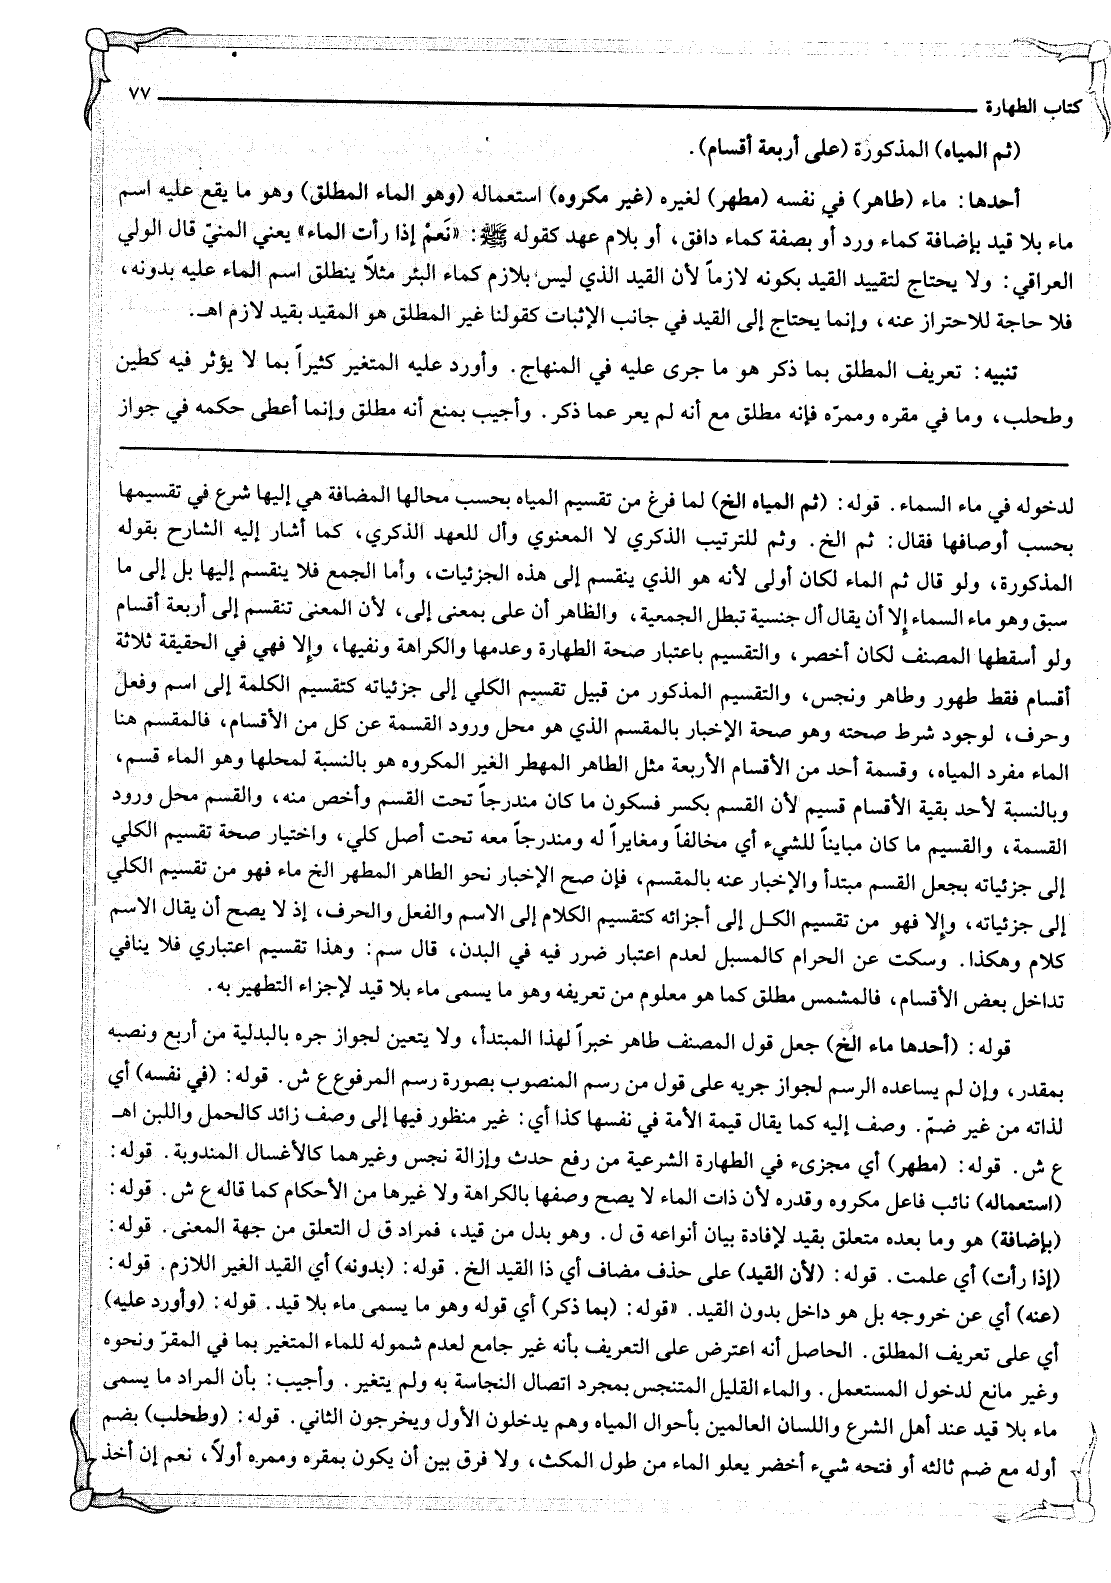 كتاب الطهارة ٧٧
(ثم المياه) المذكورة (على أربعة أقسام).
أحدها: ماء (طاهر) في نفسه (مطهر) لغيره (غير مكروه) استعماله (وهو الماء المطلق) وهو ما يقع عليه اسم
ماء بلا قيد بإضافة كماء ورد أو بصفة كماء دافق، أو بلام عهد كقوله ﷺ: «نَعمْ إذا رأت الماء» يعني المنيّ قال الولي
العراقي: ولا يحتاج لتقييد القيد بكونه لازماً لأن القيد الذي ليس بلازم كماء البئر مثلاً ينطلق اسم الماء عليه بدونه،
فلا حاجة للاحتراز عنه، وإنما يحتاج إلى القيد في جانب الإثبات كقولنا غير المطلق هو المقيد بقيد لازم اهـ.
تنبيه: تعريف المطلق بما ذكر هو ما جرى عليه في المنهاج. وأورد عليه المتغير كثيراً بما لا يؤثر فيه كطين
وطحلب، وما في مقره وممرّه فإنه مطلق مع أنه لم يعر عما ذكر. وأجيب بمنع أنه مطلق وإنما أعطى حكمه في جواز
لدخوله في ماء السماء. قوله: (ثم المياه الخ) لما فرغ من تقسيم المياه بحسب محالها المضافة هي إليها شرع في تقسيمها
بحسب أوصافها فقال: ثم الخ. وثم للترتيب الذكري لا المعنوي وأل للعهد الذكري، كما أشار إليه الشارح بقوله
المذكورة، ولو قال ثم الماء لكان أولى لأنه هو الذي ينقسم إلى هذه الجزئيات، وأما الجمع فلا ينقسم إليها بل إلى ما
سبق وهو ماء السماء إلا أن يقال أل جنسية تبطل الجمعية، والظاهر أن على بمعنى إلى، لأن المعنى تنقسم إلى أربعة أقسام
ولو أسقطها المصنف لكان أخصر، والتقسيم باعتبار صحة الطهارة وعدمها والكراهة ونفيها، وإلا فهي في الحقيقة ثلاثة
أقسام فقط طهور وطاهر ونجس، والتقسيم المذكور من قبيل تقسيم الكلي إلى جزئياته كتقسيم الكلمة إلى اسم وفعل
وحرف، لوجود شرط صحته وهو صحة الإخبار بالمقسم الذي هو محل ورود القسمة عن كل من الأقسام، فالمقسم هنا
الماء مفرد المياه، وقسمة أحد من الأقسام الأربعة مثل الطاهر المهطر الغير المكروه هو بالنسبة لمحلها وهو الماء قسم،
وبالنسبة لأحد بقية الأقسام قسيم لأن القسم بكسر فسكون ما كان مندرجاً تحت القسم وأخص منه، والقسم محل ورود
القسمة، والقسيم ما كان مبايناً للشيء أي مخالفاً ومغايراً له ومندرجاً معه تحت أصل كلي، واختيار صحة تقسيم الكلي
إلى جزئياته بجعل القسم مبتدأ والإخبار عنه بالمقسم، فإن صح الإخبار نحو الطاهر المطهر الخ ماء فهو من تقسيم الكلي
إلى جزئياته، وإلا فهو من تقسيم الكل إلى أجزائه كتقسيم الكلام إلى الاسم والفعل والحرف، إذ لا يصح أن يقال الاسم
كلام وهكذا. وسكت عن الحرام كالمسبل لعدم اعتبار ضرر فيه في البدن، قال سم: وهذا تقسيم اعتباري فلا ينافي
تداخل بعض الأقسام، فالمشمس مطلق كما هو معلوم من تعريفه وهو ما يسمى ماء بلا قيد لإجزاء التطهير به.
قوله: (أحدها ماء الخ) جعل قول المصنف طاهر خبراً لهذا المبتدأ، ولا يتعين لجواز جره بالبدلية من أربع ونصبه
بمقدر، وإن لم يساعده الرسم لجواز جريه على قول من رسم المنصوب بصورة رسم المرفوع ع ش. قوله: (في نفسه) أي
لذاته من غير ضمّ. وصف إليه كما يقال قيمة الأمة في نفسها كذا أي: غير منظور فيها إلى وصف زائد كالحمل واللبن اهـ
ع ش. قوله: (مطهر) أي مجزىء في الطهارة الشرعية من رفع حدث وإزالة نجس وغيرهما كالأغسال المندوبة. قوله:
(استعماله) نائب فاعل مكروه وقدره لأن ذات الماء لا يصح وصفها بالكراهة ولا غيرها من الأحكام كما قاله ع ش. قوله:
(بإضافة) هو وما بعده متعلق بقيد لإفادة بيان أنواعه ق ل. وهو بدل من قيد، فمراد ق ل التعلق من جهة المعنى. قوله:
(إذا رأت) أي علمت. قوله: (لأن القيد) على حذف مضاف أي ذا القيد الخ. قوله: (بدونه) أي القيد الغير اللازم. قوله:
(عنه) أي عن خروجه بل هو داخل بدون القيد. «قوله: (بما ذكر) أي قوله وهو ما يسمى ماء بلا قيد. قوله: (وأورد عليه)
أي على تعريف المطلق. الحاصل أنه اعترض على التعريف بأنه غير جامع لعدم شموله للماء المتغير بما في المقرّ ونحوه
وغير مانع لدخول المستعمل. والماء القليل المتنجس بمجرد اتصال النجاسة به ولم يتغير. وأجيب: بأن المراد ما يسمى
ماء بلا قيد عند أهل الشرع واللسان العالمين بأحوال المياه وهم يدخلون الأول ويخرجون الثاني. قوله: (وطحلب) بضم
أوله مع ضم ثالثه أو فتحه شيء أخضر يعلو الماء من طول المكث، ولا فرق بين أن يكون بمقره وممره أولاً، نعم إن أخذ